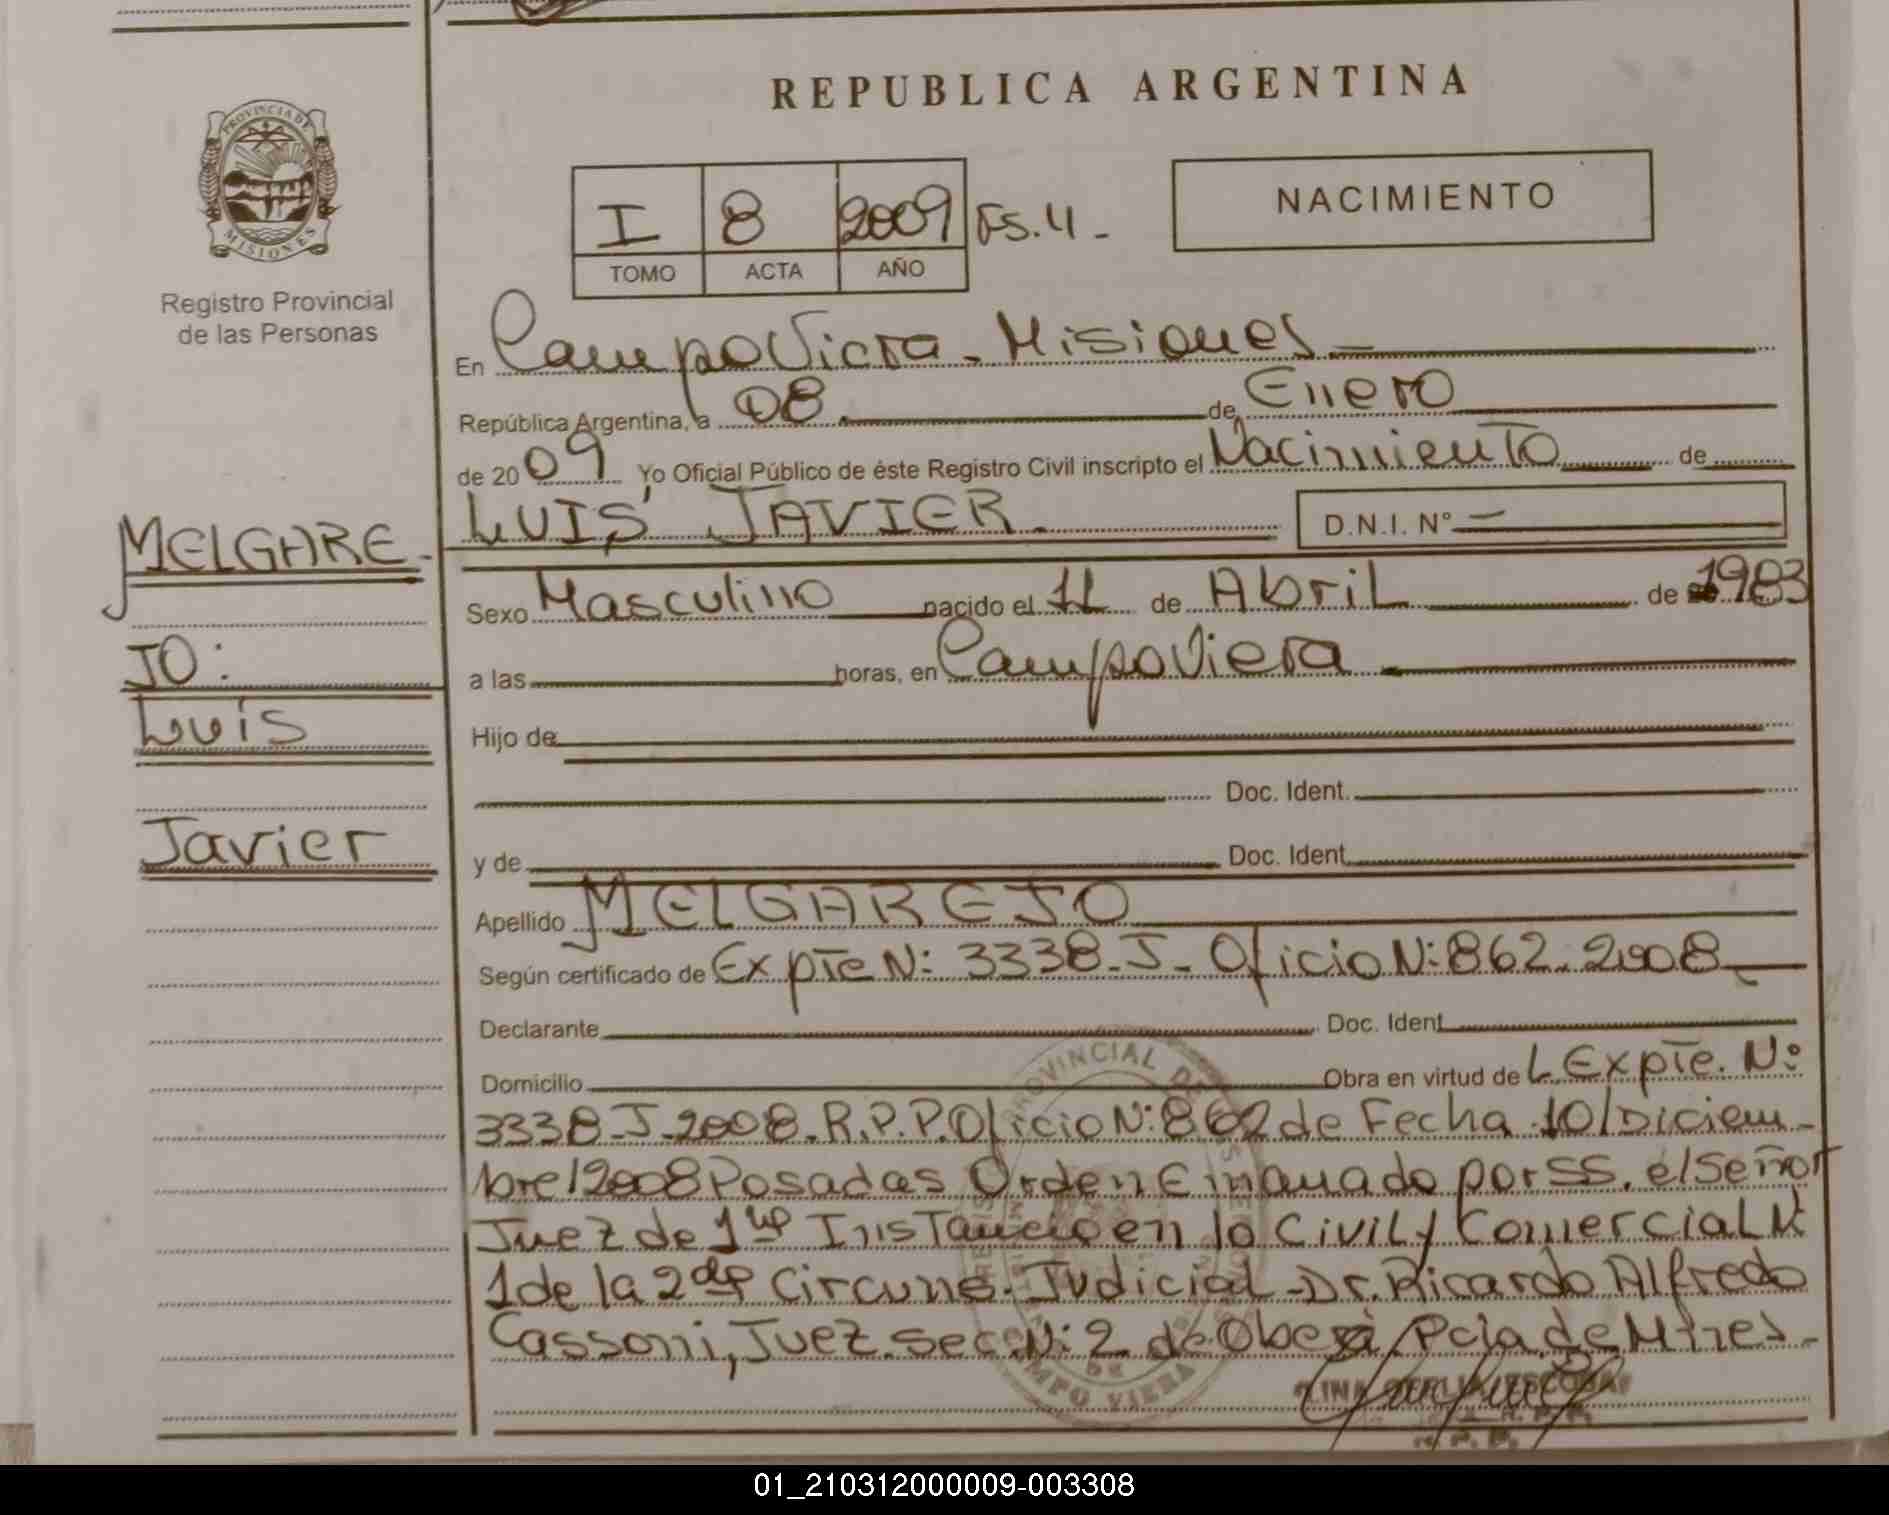 REPUBLICA ARGENTINA
PROVINCIA DE
MISIONES
Registro Provincial
de las Personas
I 8 2009 Fs.4-
TOMO ACTA AÑO
NACIMIENTO
En Campo Viera - Misiones
República Argentina, a 08 de Enero
de 2009 Yo Oficial Público de éste Registro Civil inscripto el Nacimiento de
LUIS JAVIER. D.N.I. N° —
MELGARE-
JO:
Luis
Javier
Sexo Masculino nacido el 11 de Abril de 1983
a las horas, en Campo Viera
Hijo de
Doc. Ident.
y de Doc. Ident.
Apellido MELGAREJO
Según certificado de Expte N: 3338-J- Oficio N: 862-2008
Declarante Doc. Ident
Domicilio Obra en virtud de L Expte. Nº
3338-J-2008-R.P.P. Oficio N: 862 de Fecha 10/Diciem-
bre/2008 Posadas Orden Emanada por SS. el Señor
Juez de 1ra Instancia en lo Civil y Comercial N:
1 de la 2da Circuns. Judicial - Dr. Ricardo Alfredo
Cassoni, Juez. Sec. N: 2 de Oberá, Pcia. de Mnes-
PROVINCIAL DE
CAMPO VIERA
01_210312000009-003308